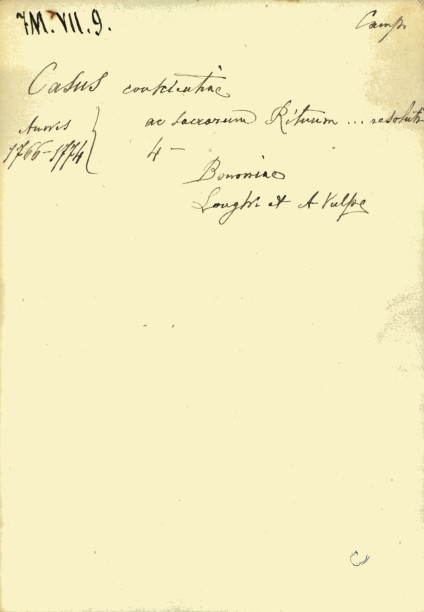 7M. VII. 9.
Camp.
Casus conscientiae
ac sacrorum Rituum ... resoluti
Annis
1766-1774 } 4-
Bononiae
Longhi et A Vulpe